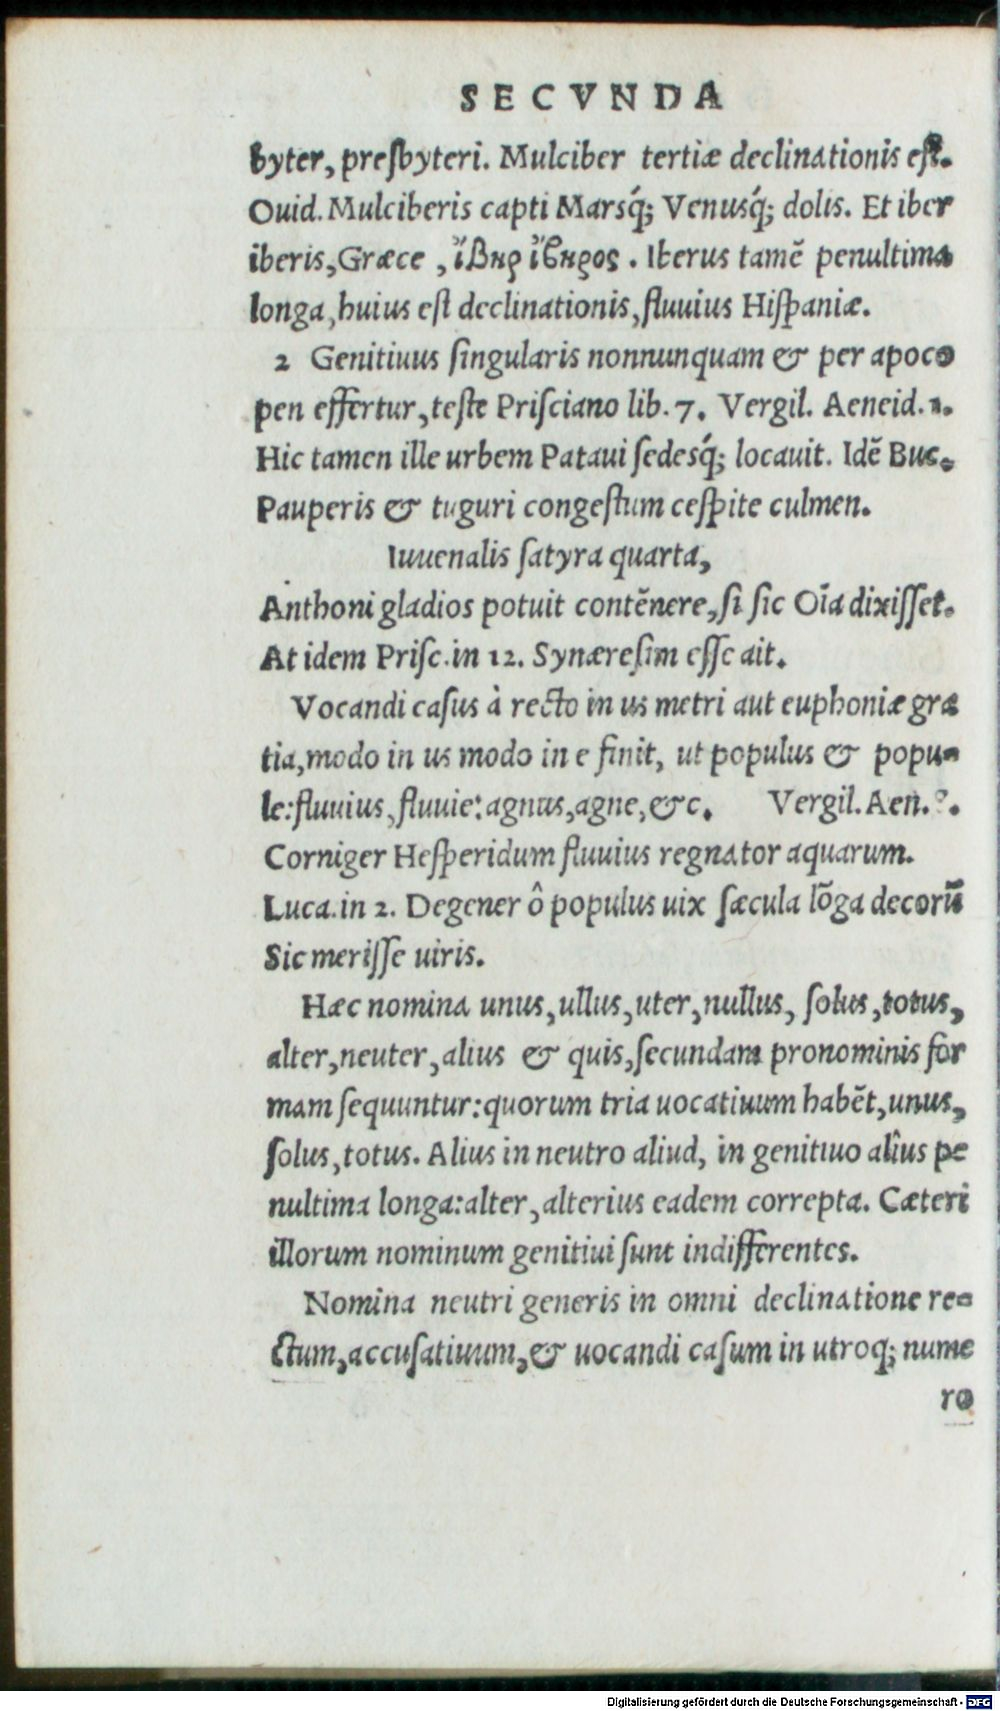 SECVNDA
byter, presbyteri. Mulciber tertiæ declinationis est.
Ouid. Mulciberis capti Marsq́; Venusq́; dolis. Et iber
iberis, Græce , ἴβηρ ἴβηρος . Iberus tamẽ penultima
longa, huius est declinationis, fluuius Hispaniæ.
2 Genitiuus singularis nonnunquam & per apoco
pen effertur, teste Prisciano lib. 7. Vergil. Aeneid. 1.
Hic tamen ille urbem Pataui sedesq́; locauit. Idẽ Buc.
Pauperis & tuguri congestum cespite culmen.
Iuuenalis satyra quarta,
Anthoni gladios potuit contẽnere, si sic Oĩa dixisset.
At idem Prisc. in 12. Synæresim esse ait.
Vocandi casus à recto in us metri aut euphoniæ gra
tia, modo in us modo in e finit, ut populus & popu-
le: fluuius, fluuie: agnus, agne, &c. Vergil. Aen. .
Corniger Hesperidum fluuius regnator aquarum.
Luca. in 2. Degener ô populus uix sæcula lõga decorũ
Sic merisse uiris.
Hæc nomina unus, ullus, uter, nullus, solus, totus,
alter, neuter, alius & quis, secundam pronominis for
mam sequuntur: quorum tria uocatiuum habẽt, unus,
solus, totus. Alius in neutro aliud, in genitiuo alîus pe
nultima longa: alter, alterius eadem correpta. Cæteri
illorum nominum genitiui sunt indifferentes.
Nomina neutri generis in omni declinatione re-
ctum, accusatiuum, & uocandi casum in utroq; nume
ro
Digitalisierung gefördert durch die Deutsche Forschungsgemeinschaft - DFG